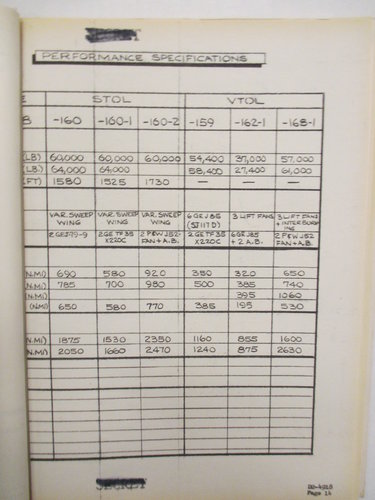 PERFORMANCE SPECIFICATIONS
E STOL VTOL
-160 -160-1 -160-2 -159 -162-1 -168-1
(LB) 60,000 60,000 60,000 54,400 37,000 57,000
(LB.) 64,000 64,000 58,400 27,400 61,000
(FT) 1580 1525 1730 — — —
VAR. SWEEP VAR. SWEEP VAR. SWEEP 6 GE J85 3 LIFT FANS 3 LIFT FANS
WING WING WING (SJ117D) + INTERBURN
ING
2 GE J79-9 2 GE TF35 2 P&W J52 2 GE TF35 6 GE J85 2 P&W J52
X220C FAN + A.B. X220C + 2 A.B. FAN + A.B.
(N.MI) 690 580 920 350 320 650
(N.MI) 785 700 980 500 385 740
(N.MI) 395 1060
(N.MI) 650 580 770 385 195 530
(N.MI) 1875 1530 2350 1160 855 1600
(N.MI) 2050 1660 2470 1240 875 2630
SECRET
Page 14